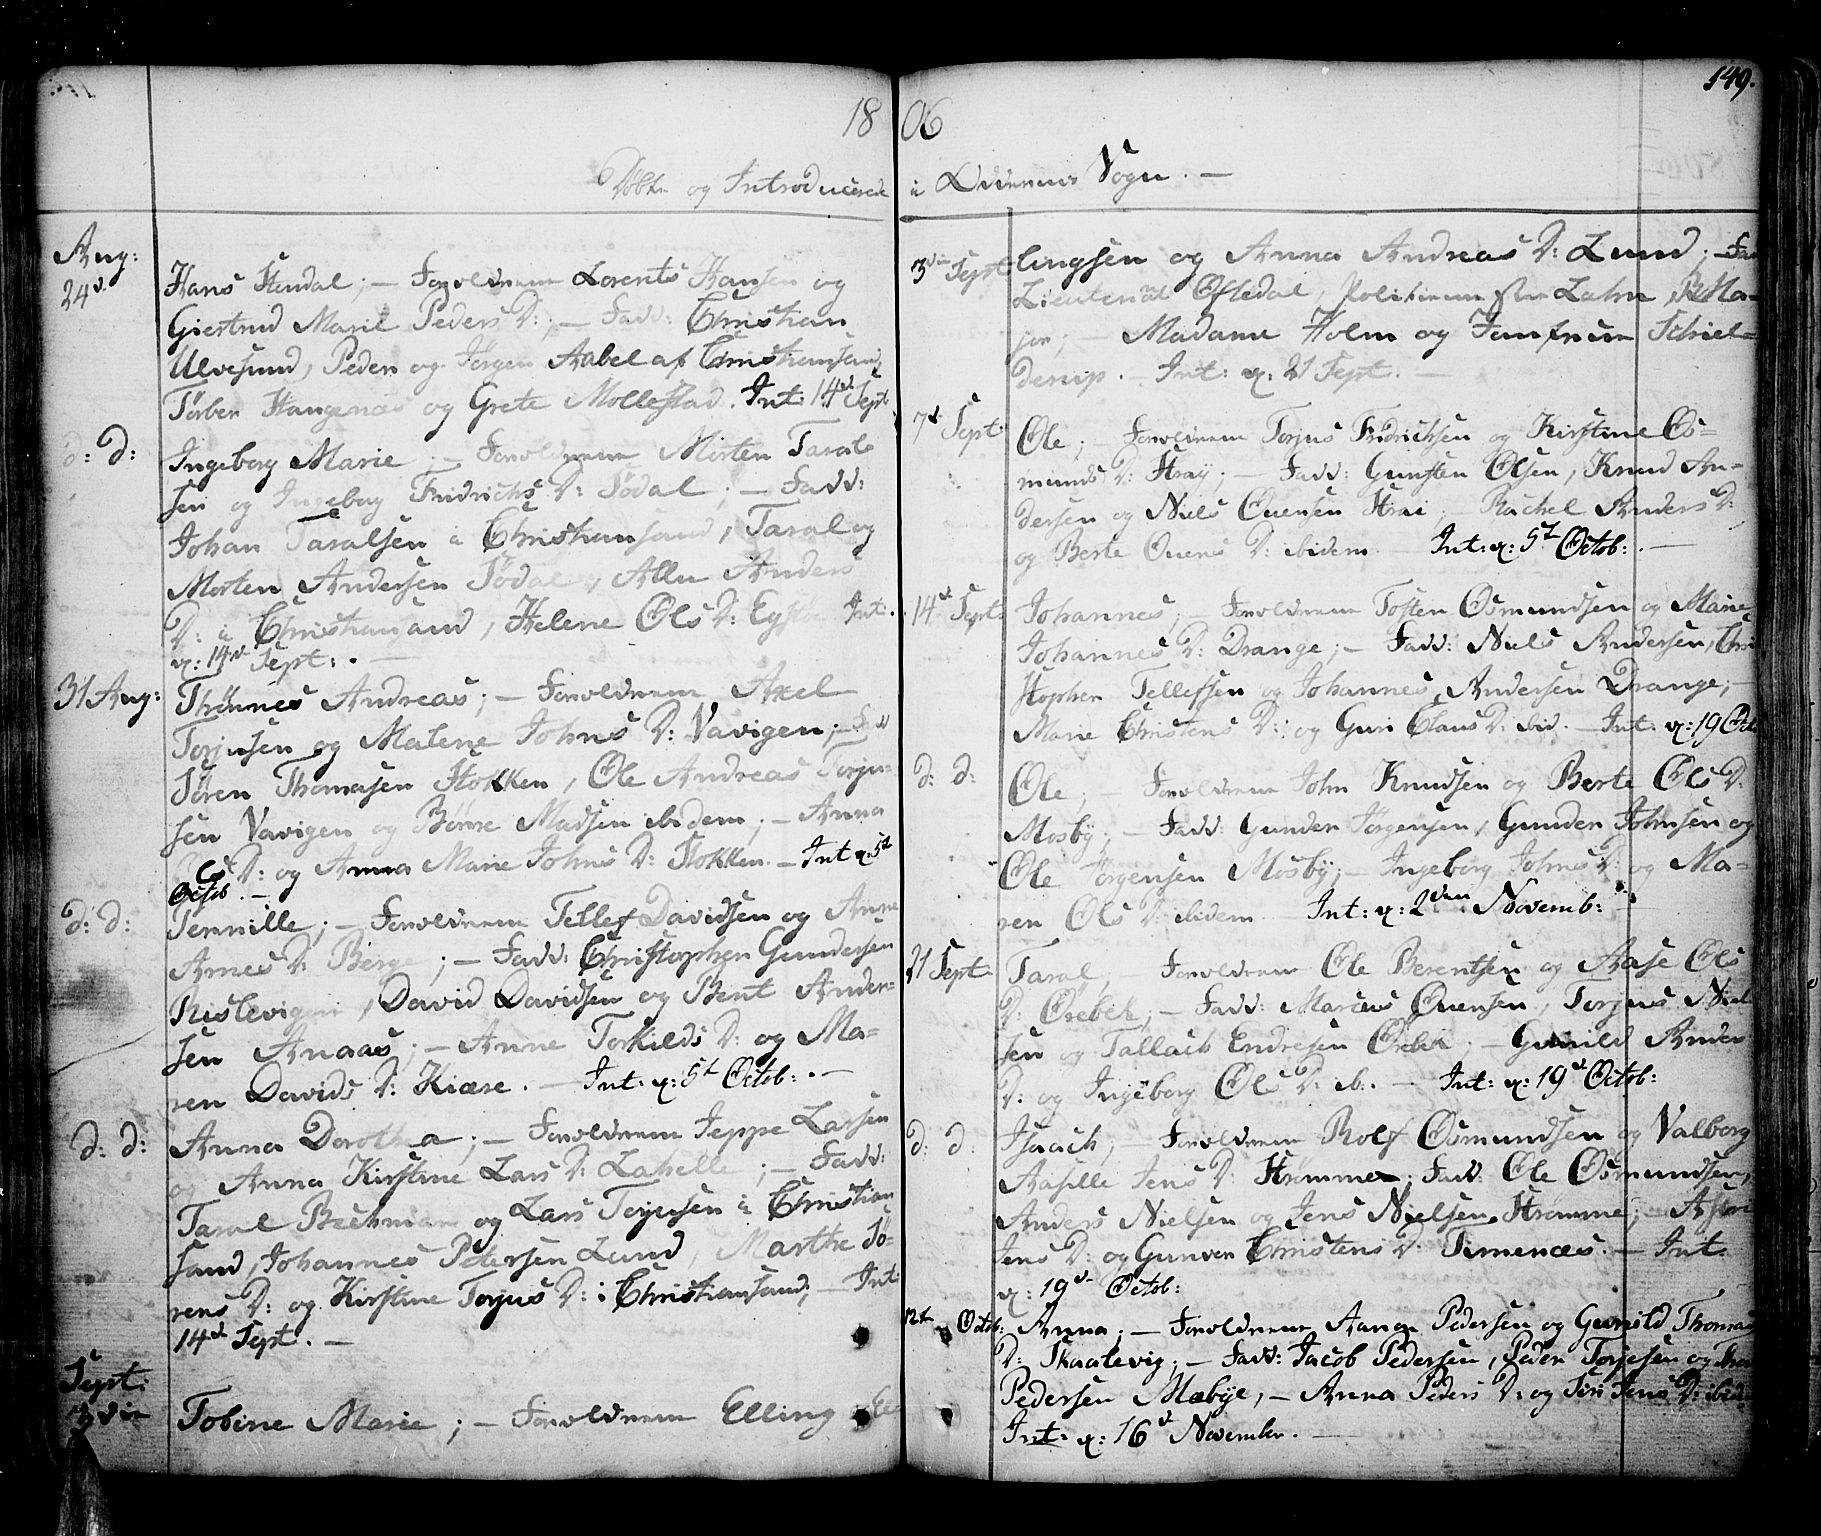 149.
18 06
Døbte og Introducerede i Oddernes Sogn. —
Aug:
24d. Hans Stendal; — Forældrene Lorents Hansen og
Giertrud Marie Peders D:; — Fadd: Christian
Ulvesund, Peder og Jørgen Aabel af Christiansand,
Torber Haugenæs og Grete Mollestad. Int: 14d Sept
d: d: Ingeborg Marie; — Forældrene Morten Taral-
sen og Ingeborg Fridrichs D: Sødal; — Fadd:
Johan Taralsen i Christiansand, Taral og
Morten Andersen Sødal, Anders
D: i Christiansand, Helene Ols D: Int.
x: 14d Sept: . —
31 Aug: Thønnes Andreas; — Forældrene Axel
Torjusen og Malene Johns D: Vavigen; — Fadd
Søren Thomasen Stokken, Ole Andreas Torju-
sen Vavigen og Børre Madsen ibidem; — Anna
Ols D: og Anna Marie Johns D: Stokken. — Int x: 5te
Octob. —
d: d: Pernille; — Forældrene Tellef Davidsen og Anne
Arnes D: Berge; — Fadd: Christopher Gundersen
Ristevigen, David Davidsen og Bent Ander-
sen Anaas; — Anne Torkilds D: og Ma-
ren Davids D: Kiære. — Int: x: 5t Octob: . —
d: d: Anna Dorothea; — Forældrene Jeppe Larsen
og Anna Kirstine Lars D: Lahelle; — Fadd:
Taral Bechman og Lars Torjusen i Christian
sand, Johannes Petersen Lund, Marthe Sø-
rens D: og Kirstine Torjus D: i Christiansand; — Int
14d Sept. —
Sept:
3die Tobine Marie; — Forældrene Elling El
3die Sept lingsen og Anna Andreas D: Lund; — Fad
Lieutenat Øfledal, Ma-
jor; — Madame Holm og Jomfrue Schiel-
derup. — Int: x: 21 Sept. —
7d Sept: Ole; — Forældrene Torjus Fridrichsen og Kirstine Os-
munds D: Straÿ; — Fadd: Gunsten Olsen, Knud An-
dersen og Niels Ouensen Strai; — Rachel Anders D:
og Berte Ouens D: ibidem. Int: x: 5t Octob: . —
14d Sept: Johannes; — Forældrene Tosten Osmundsen og Marie
Johannes D: Drange; — Fadd: Niels Andersen, Chri
stopher Tellefsen og Johannes Andersen Drange; —
Marie Christens D: og Guri Claus D: ibid. — Int: x: 19 Oct
d: d: Ole; — Forældrene John Knudsen og Berte Ols D:
Mosbÿ; — Fadd: Gunder Jørgensen, Gunder Johnsen og
Ole Jørgensen Mosbÿ; — Ingeborg Johns D: og Ma-
ren Ols D: ibidem Int: x: 2den Novemb: .
21 Sept: Taral; — Forældrene Ole Berentsen og Aase Ols
D: Ørebek; — Fadd: Marcus Ouensen, Torjus Niel
sen og Tallach Endresen Ørebek. — Gunild Anders
D: og Ingeborg Ols D: ib: . — Int: x: 19d Octob:
d: d: Isaach; — Forældrene Rolf Osmundsen og Valborg
Aasille Jens D: Strømme; Fadd: Ole Osmundsen,
Anders Nielsen og Jens Nielsen Strømme; —
Jens D: og Gunver Christens D: Timenæs. — Int
x: 19d Octob:
12t Octob: Anna; — Forældrene Aanon Pedersen og Gunild Thomas
D: Skaalevig; — Fadd: Jacob Pedersen, Peder Torjesen og
Pedersen Mæbÿe, — Anna Peders D: og Siri Jens D: ibid
Int: x: 16d November. —